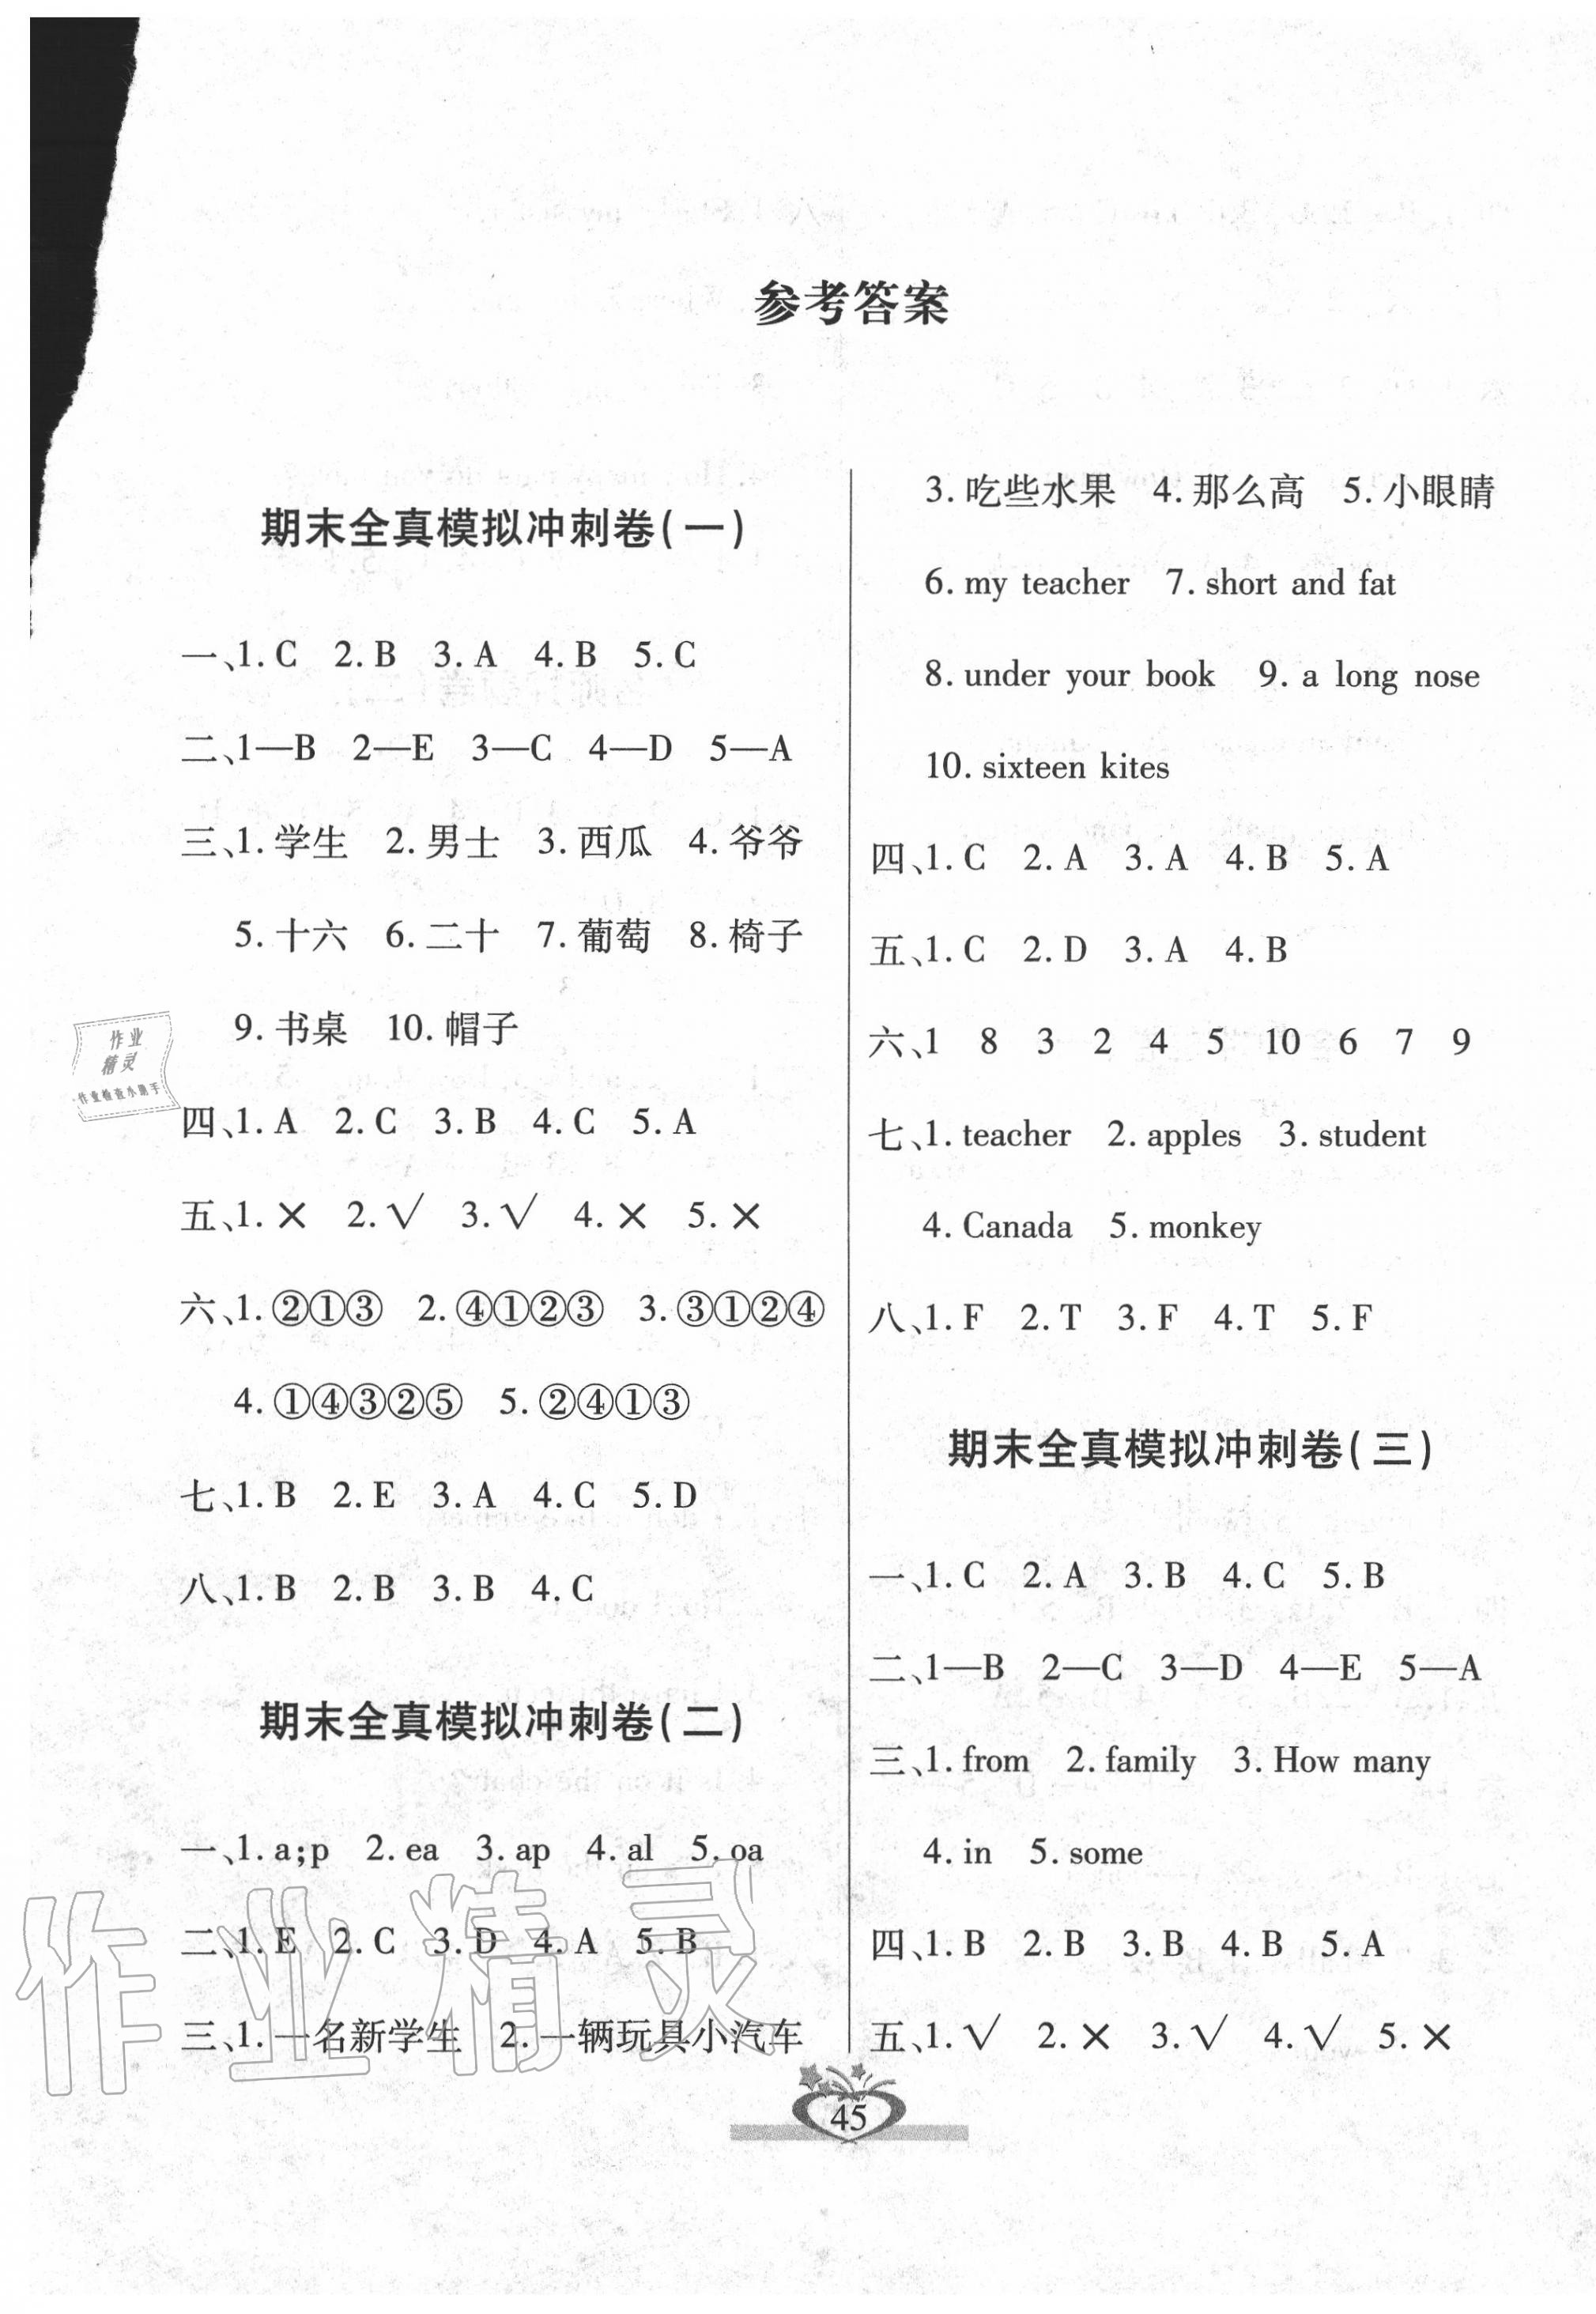 参考答案
期末全真模拟冲刺卷(一)
一、1. C 2. B 3. A 4. B 5. C
二、1—B 2—E 3—C 4—D 5—A
三、1. 学生 2. 男士 3. 西瓜 4. 爷爷
5. 十六 6. 二十 7. 葡萄 8. 椅子
9. 书桌 10. 帽子
四、1. A 2. C 3. B 4. C 5. A
五、1. × 2. √ 3. √ 4. × 5. ×
六、1. ②①③ 2. ④①②③ 3. ③①②④
4. ①④③②⑤ 5. ②④①③
七、1. B 2. E 3. A 4. C 5. D
八、1. B 2. B 3. B 4. C
期末全真模拟冲刺卷(二)
一、1. a;p 2. ea 3. ap 4. al 5. oa
二、1. E 2. C 3. D 4. A 5. B
三、1. 一名新学生 2. 一辆玩具小汽车
3. 吃些水果 4. 那么高 5. 小眼睛
6. my teacher 7. short and fat
8. under your book 9. a long nose
10. sixteen kites
四、1. C 2. A 3. A 4. B 5. A
五、1. C 2. D 3. A 4. B
六、1 8 3 2 4 5 10 6 7 9
七、1. teacher 2. apples 3. student
4. Canada 5. monkey
八、1. F 2. T 3. F 4. T 5. F
期末全真模拟冲刺卷(三)
一、1. C 2. A 3. B 4. C 5. B
二、1—B 2—C 3—D 4—E 5—A
三、1. from 2. family 3. How many
4. in 5. some
四、1. B 2. B 3. B 4. B 5. A
五、1. √ 2. × 3. √ 4. √ 5. ×
45
作业
精灵
作业检查小助手
作业精灵